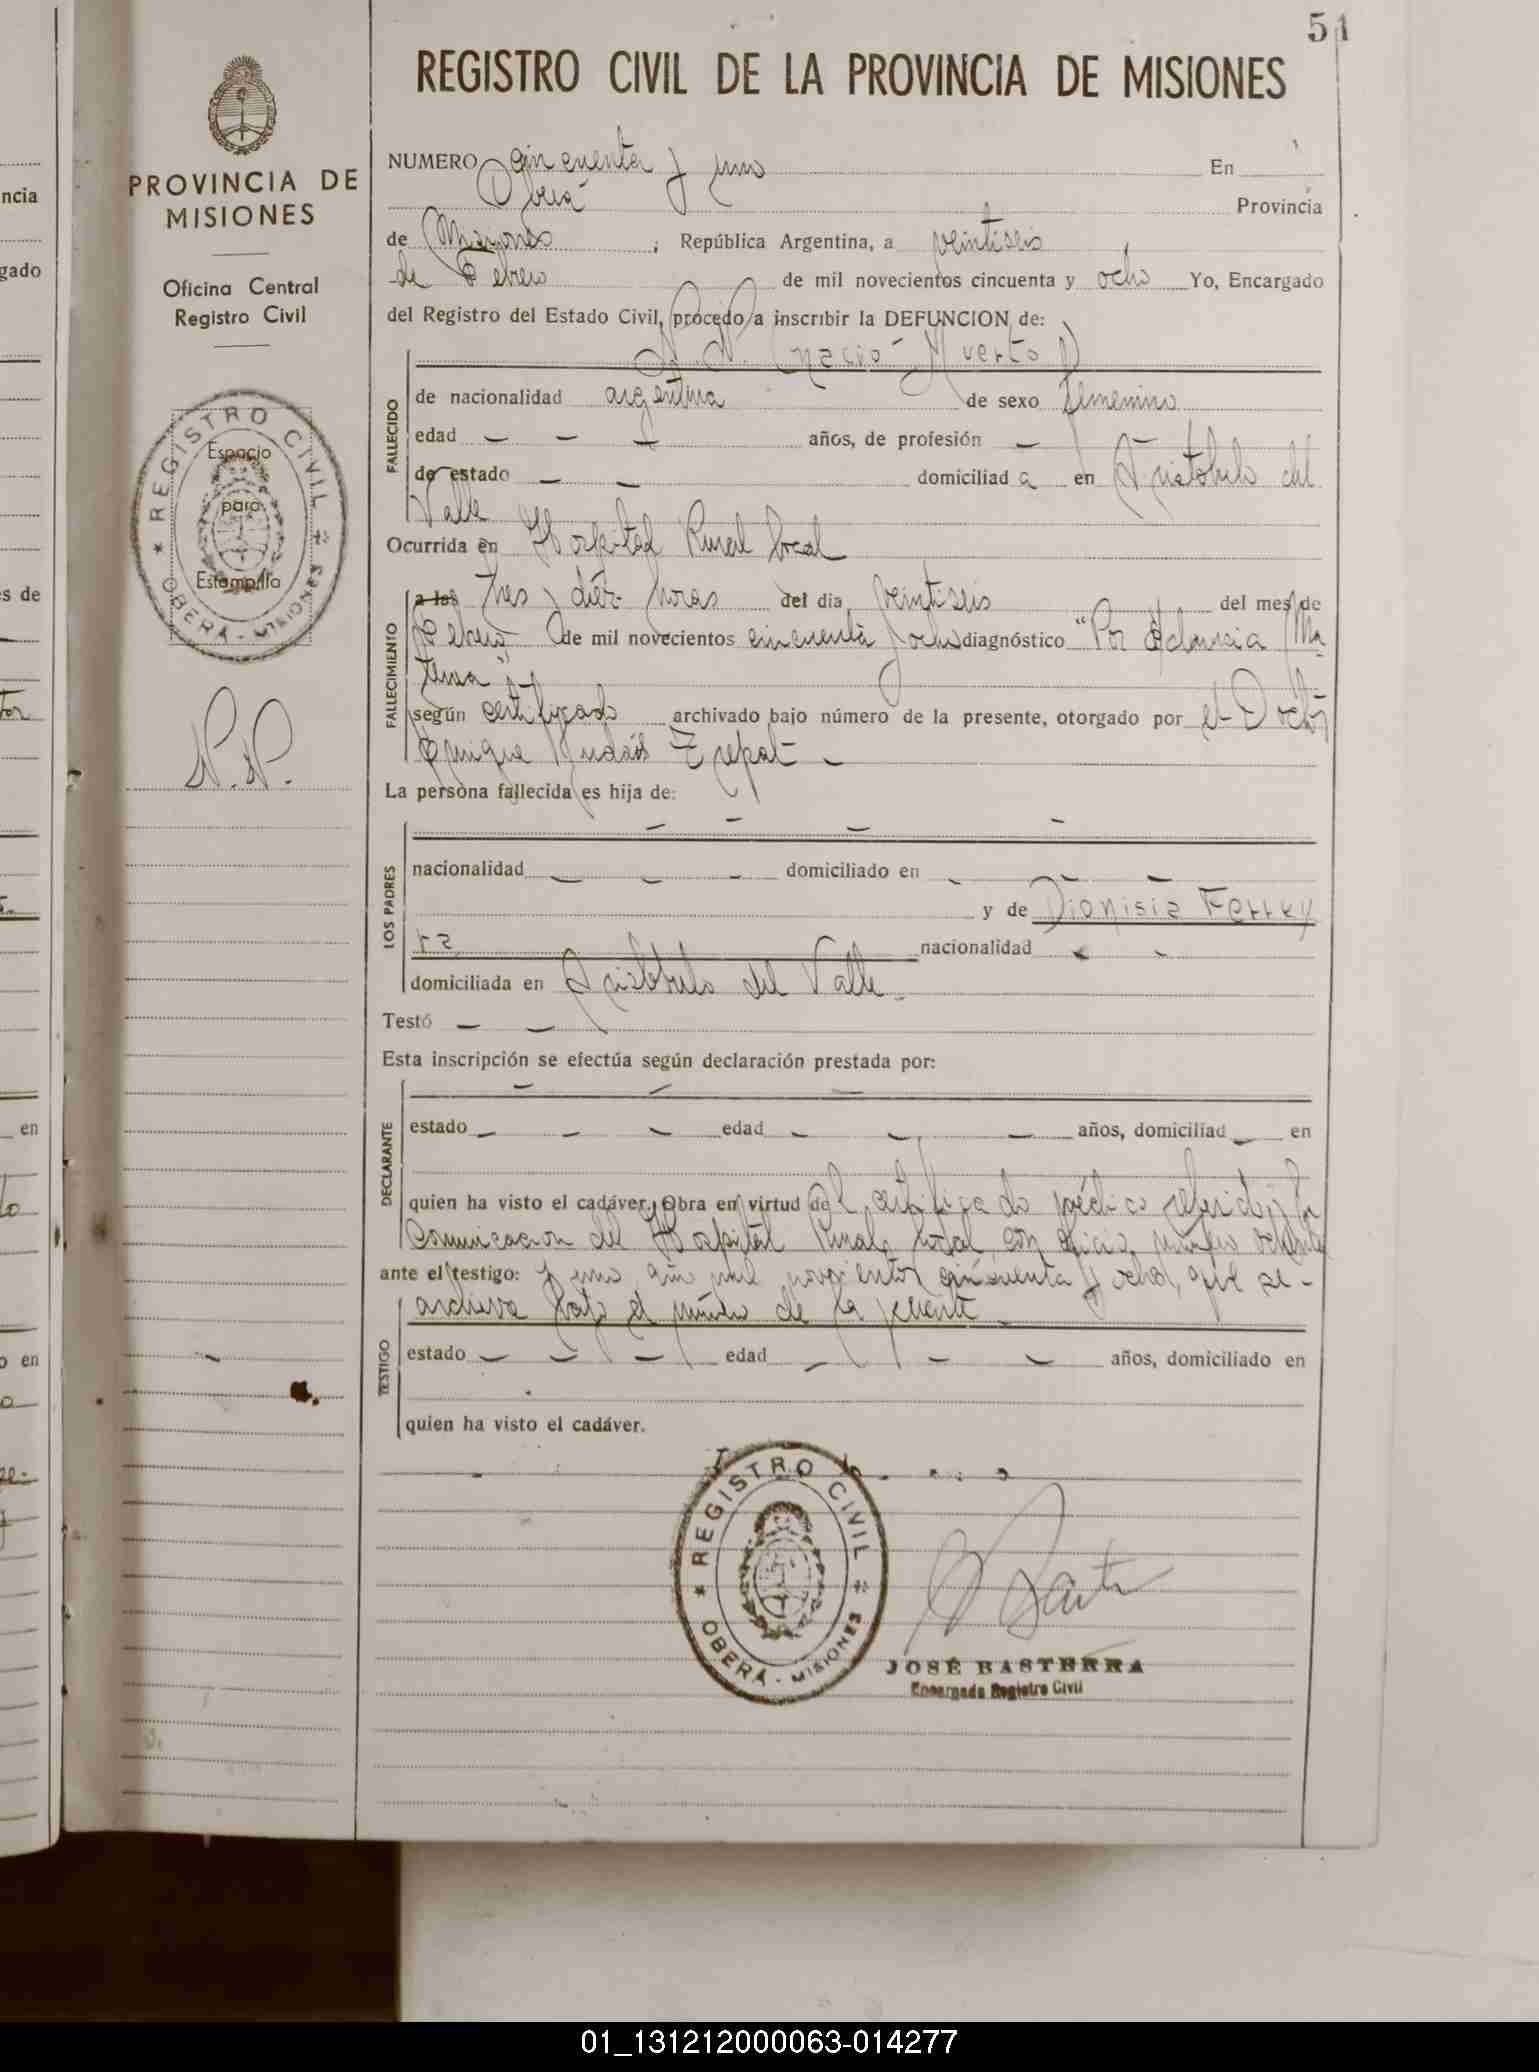 51
REGISTRO CIVIL DE LA PROVINCIA DE MISIONES
PROVINCIA DE
MISIONES
Oficina Central
Registro Civil
REGISTRO CIVIL
Espacio
para
Estampilla
OBERÁ - MISIONES
N.N.
NUMERO cincuenta y uno En
Oberá Provincia
de Misiones ; República Argentina, a veintiseis
de Febrero de mil novecientos cincuenta y ocho Yo, Encargado
del Registro del Estado Civil, procedo a inscribir la DEFUNCION de:
N.N. (nació Muerto)
FALLECIDO
de nacionalidad argentina de sexo femenino
edad — — — años, de profesión —
de estado — — domiciliad a en Aristobulo del
Valle
Ocurrida en Hospital Rural local
FALLECIMIENTO
a las tres y diez horas del dia veintiseis del mes de
Febrero de mil novecientos cincuenta y ocho diagnóstico "Por Eclancia Ma-
terna"
según certificado archivado bajo número de la presente, otorgado por el Doctor
Enrique
La persona fallecida es hija de:
LOS PADRES
— — — —
nacionalidad — — — domiciliado en — — —
y de Dionisia Ferrey
ra nacionalidad — —
domiciliada en Aristobulo del Valle
Testó — —
Esta inscripción se efectúa según declaración prestada por:
DECLARANTE
— — —
estado — — — edad — — — años, domiciliad — en
quien ha visto el cadáver. Obra en virtud del certificado médico referido y la
Comunicacion del Hospital Rural local, con oficio, número ochenta
ante el testigo: y uno, año mil novecientos cincuenta y ocho, que se-
archiva bajo el número de la presente
TESTIGO
estado — — — edad — — — años, domiciliado en
quien ha visto el cadáver.
REGISTRO CIVIL
OBERÁ - MISIONES
JOSÉ BASTERRA
Encargado Registro Civil
ncia
gado
s de
en
o en
01_131212000063-014277